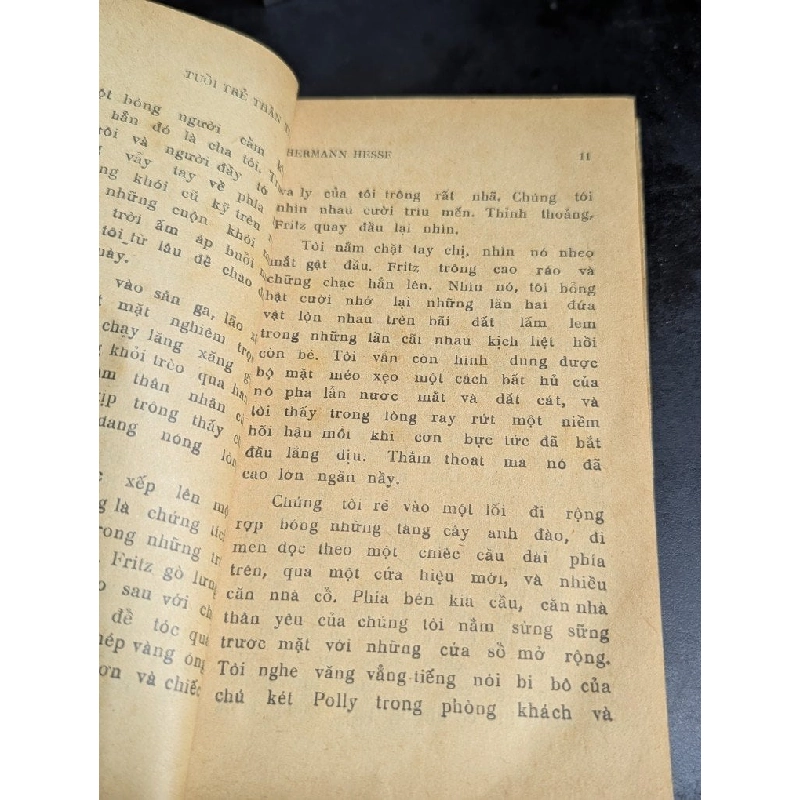 TUỔI TRẺ THẦN T
ột bóng người cầm
hẳn đó là cha tôi. T
rôi và người đầy tớ
vẫy tay về phía
ng khói cũ kỹ trên
những cuộn khói
trời ấm áp buồi
tôi từ lâu đề chao
này.
vào sân ga, lão
mặt nghiêm trọ
chạy lăng xăng g
g khỏi trèo qua ha
m thân nhân c
ịp trông thấy c
đang nóng lòn
xếp lên mộ
g là chứng tíc
rong những tr
Fritz gò lưng
o sau với ch
đề tóc quả
hép vàng óng
ơn và chiếc
HERMANN HESSE 11
va ly của tôi trông rất nhã. Chúng tôi
nhìn nhau cười trìu mến. Thỉnh thoảng,
Fritz quay đầu lại nhìn.
Tôi nắm chặt tay chị, nhìn nó nheo
mắt gật đầu. Fritz trông cao ráo và
chững chạc hẳn lên. Nhìn nó, tôi bỗng
bật cười nhớ lại những lần hai đứa
vật lộn nhau trên bãi đất lấm lem
trong những lần cãi nhau kịch liệt hồi
còn bé. Tôi vẫn còn hình dung được
bộ mặt méo xẹo một cách bất hủ của
nó pha lẫn nước mắt và đất cát, và
tôi thấy trong lòng ray rứt một niềm
hối hận mỗi khi cơn bực tức đã bắt
đầu lắng dịu. Thấm thoát mà nó đã
cao lớn ngần nầy.
Chúng tôi rẽ vào một lối đi rộng
rợp bóng những tàng cây anh đào, đi
men dọc theo một chiếc cầu dài phía
trên, qua một cửa hiệu mới, và nhiều
căn nhà cổ. Phía bên kia cầu, căn nhà
thân yêu của chúng tôi nằm sừng sững
trước mặt với những cửa sồ mở rộng.
Tôi nghe văng vẳng tiếng nói bi bô của
chú két Polly trong phòng khách và